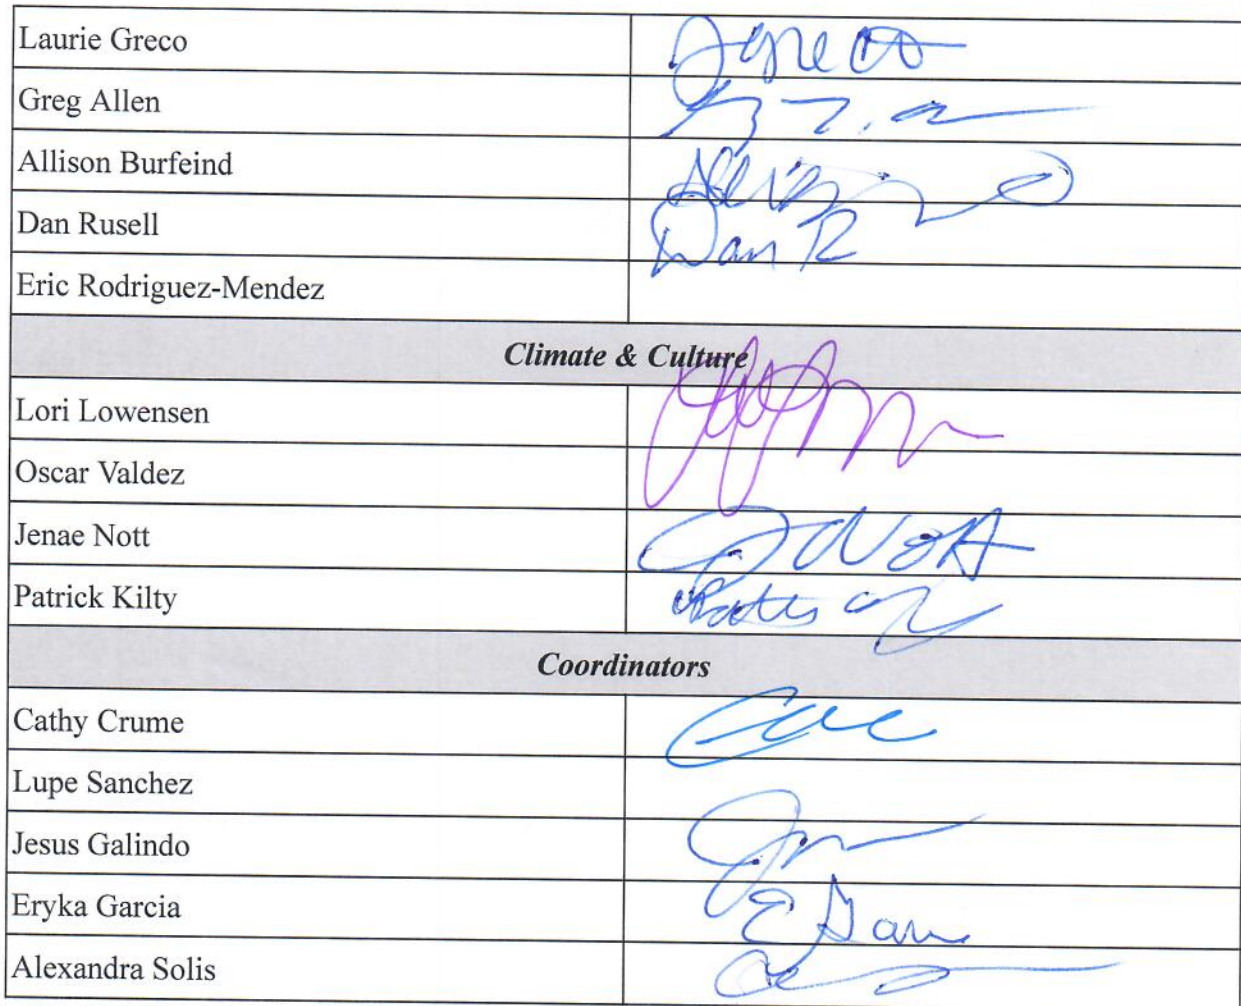 Laurie Greco
Greg Allen
Allison Burfeind
Dan Rusell Dan R
Eric Rodriguez-Mendez
Climate & Culture
Lori Lowensen
Oscar Valdez
Jenae Nott J Nott
Patrick Kilty
Coordinators
Cathy Crume
Lupe Sanchez
Jesus Galindo
Eryka Garcia
Alexandra Solis